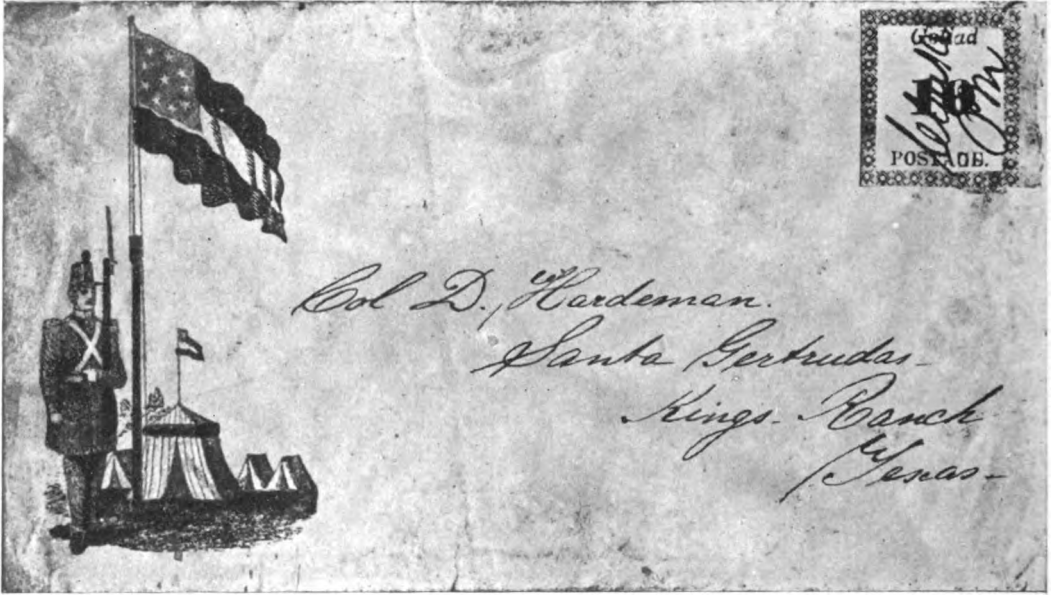 Goliad
10
POSTAGE.
Col D. Hardeman.
Santa Gertrudas-
Kings-Ranch
Texas-